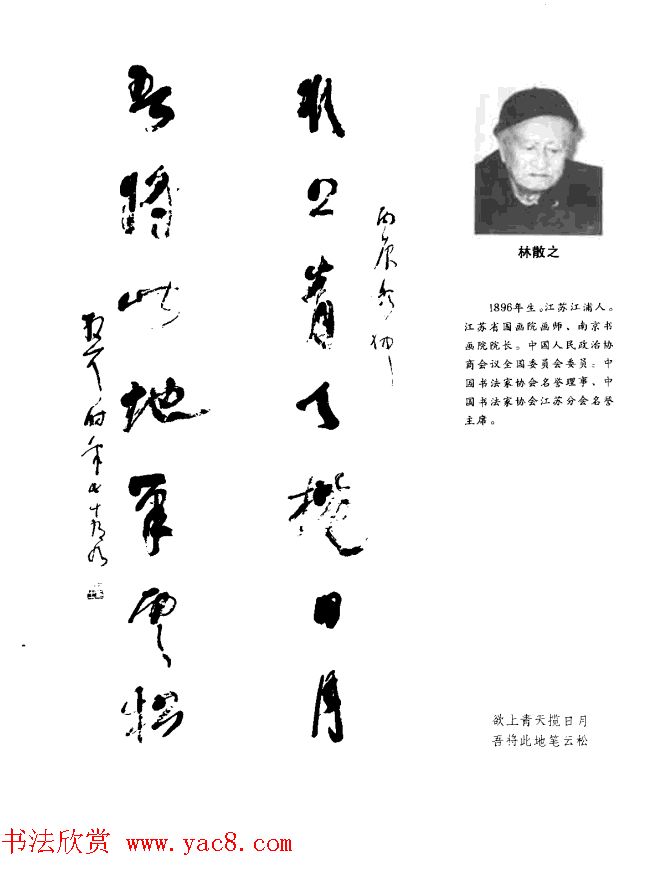 欲上青天揽日月
吾将此地笔云松
林散之
1896年生。江苏江浦人。
江苏省国画院画师、南京书
画院院长。中国人民政治协
商会议全国委员会委员；中
国书法家协会名誉理事、中
国书法家协会江苏分会名誉
主席。
欲上青天揽日月
吾将此地笔云松
书法欣赏 www.yac8.com